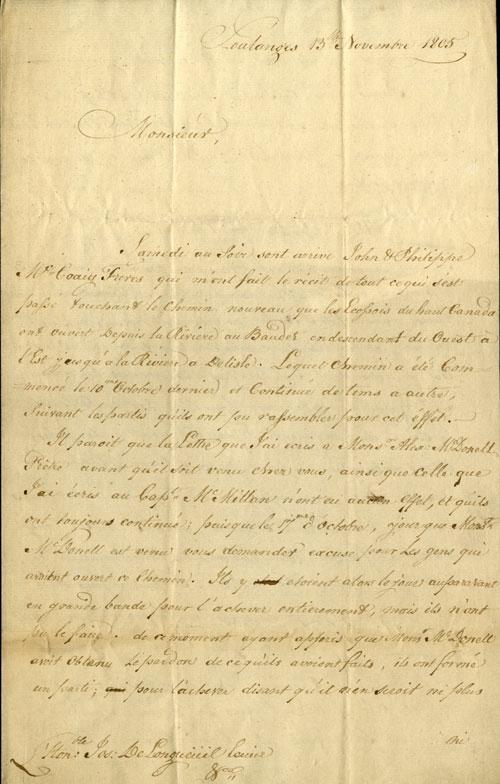 Soulanges 15th Novembre 1805
Monsieur,
Samedi au Soir sont arrivé John & Philippe
McCoaig Freres qui m'ont fait le récit de tout cequi s'est
passé touchant le Chemin nouveau que les Ecossois du haut Canada
ont ouvert Depuis la Riviere au Baudet en descendant du Ouest à
l'Est jusqu'à la Riviere à Delisle. Lequel Chemin a été Com-
mencé le 10me Octobre dernier et Continué de tems a autre,
Suivant les partis qu'ils ont pu rassembler pour cet effet.
Il paroit que la Lettre que J'ai écris a Monsr Alexr McDonell
Prêtre avant qu'il soit venu chez vous, ainsi que celle que
J'ai écris au Capt McMillan n'ont eu aucun effet, et qu'ils
ont toujours continué; puisque le 17me d'Octobre, jour que Monsr
McDonell est venu vous demander excuse pour les gens qui
avoient ouvert ce Chemin. Ils y étoient alors le jour auparavant
en grande bande pour l'achever entierement, mais ils n'ont
pu le faire. de ce moment ayant appris que Monsr McDonell
avoit obtenu le pardon de cequ'ils avoient faits, ils ont formé
un parti; pour l'achever disant qu'il n'en seroit ni plus
ni
L'Honble Jos: De Longueüil
&ca